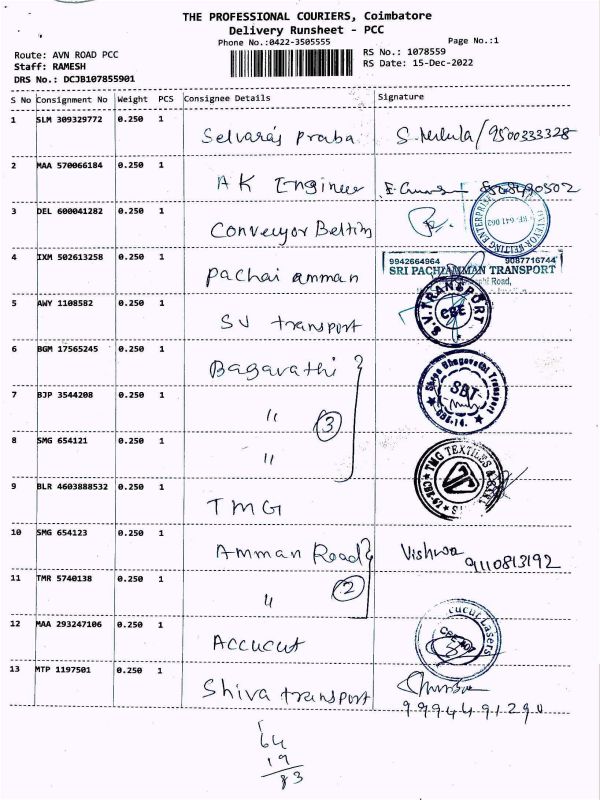 THE PROFESSIONAL COURIERS, Coimbatore
Delivery Runsheet - PCC
Phone No.:0422-3505555
Page No.:1
Route: AVN ROAD PCC
RS No.: 1078559
Staff: RAMESH
RS Date: 15-Dec-2022
DRS No.: DCJB107855901
S No Consignment No Weight PCS Consignee Details Signature
1 SLM 309329772 0.250 1
Selvaraj Praba 9500333328
2 MAA 570066184 0.250 1
A K Engineer
3 DEL 600041282 0.250 1
Conveyor Belting
CONVEYOR BELTING ENTERPRISE
4 IXM 502613258 0.250 1
Pachai amman
9942664964 9087716744
SRI PACHIAMMAN TRANSPORT
Road,
5 AWY 1108582 0.250 1
SV transport
S.V. TRANSPORT
CBE
6 BGM 17565245 0.250 1
Bagavathi
7 BJP 3544208 0.250 1
" 3
Shree Bhagavathi Transport
SBT
CBE-14.
8 SMG 654121 0.250 1
"
9 BLR 4603888532 0.250 1
TMG
TMG TEXTILES
CBE-42
10 SMG 654123 0.250 1
Amman Road Vishwa
9110813192
11 TMR 5740138 0.250 1
" 2
12 MAA 293247106 0.250 1
Accucut
Lasers
13 MTP 1197501 0.250 1
Shiva transport
9994491290
1
64
19
83